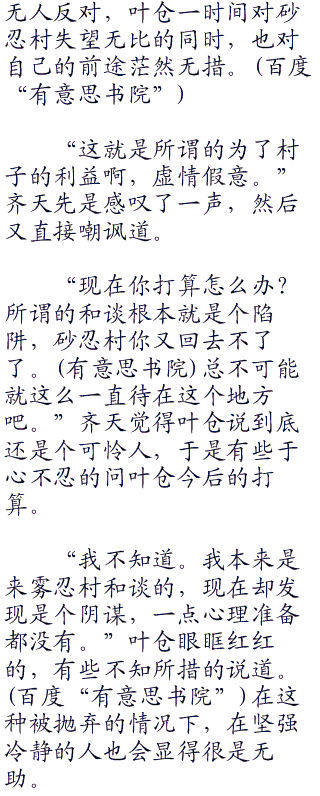 无人反对，叶仓一时间对砂
忍村失望无比的同时，也对
自己的前途茫然无措。(百度
“有意思书院”)
“这就是所谓的为了村
子的利益啊，虚情假意。”
齐天先是感叹了一声，然后
又直接嘲讽道。
“现在你打算怎么办？
所谓的和谈根本就是个陷
阱，砂忍村你又回去不了
了。(有意思书院)总不可能
就这么一直待在这个地方
吧。”齐天觉得叶仓说到底
还是个可怜人，于是有些于
心不忍的问叶仓今后的打
算。
“我不知道。我本来是
来雾忍村和谈的，现在却发
现是个阴谋，一点心理准备
都没有。”叶仓眼眶红红
的，有些不知所措的说道。
(百度“有意思书院”)在这
种被抛弃的情况下，在坚强
冷静的人也会显得很是无
助。